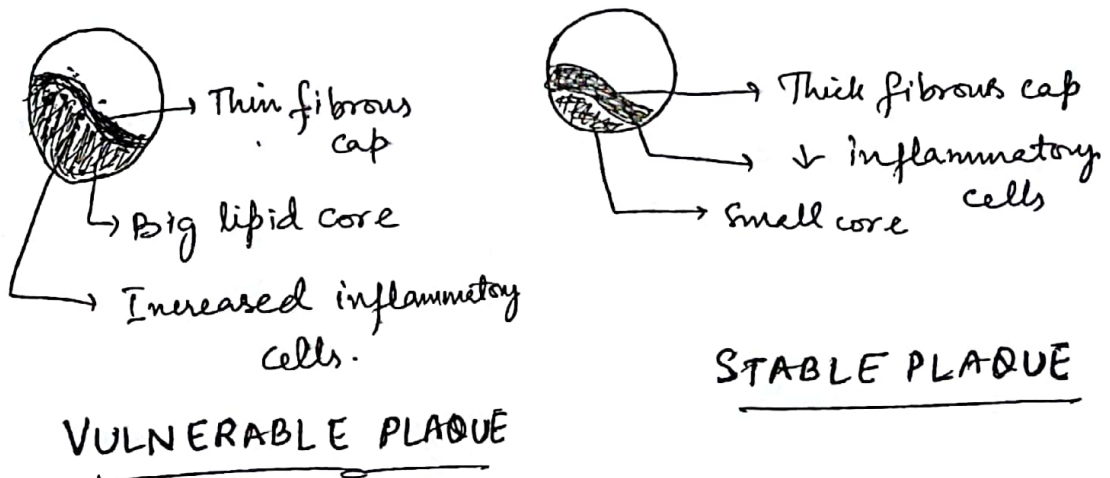 Thin fibrous
cap
Big lipid core
Increased inflammatory
cells.
VULNERABLE PLAQUE
Thick fibrous cap
↓ inflammatory
cells
Small core
STABLE PLAQUE